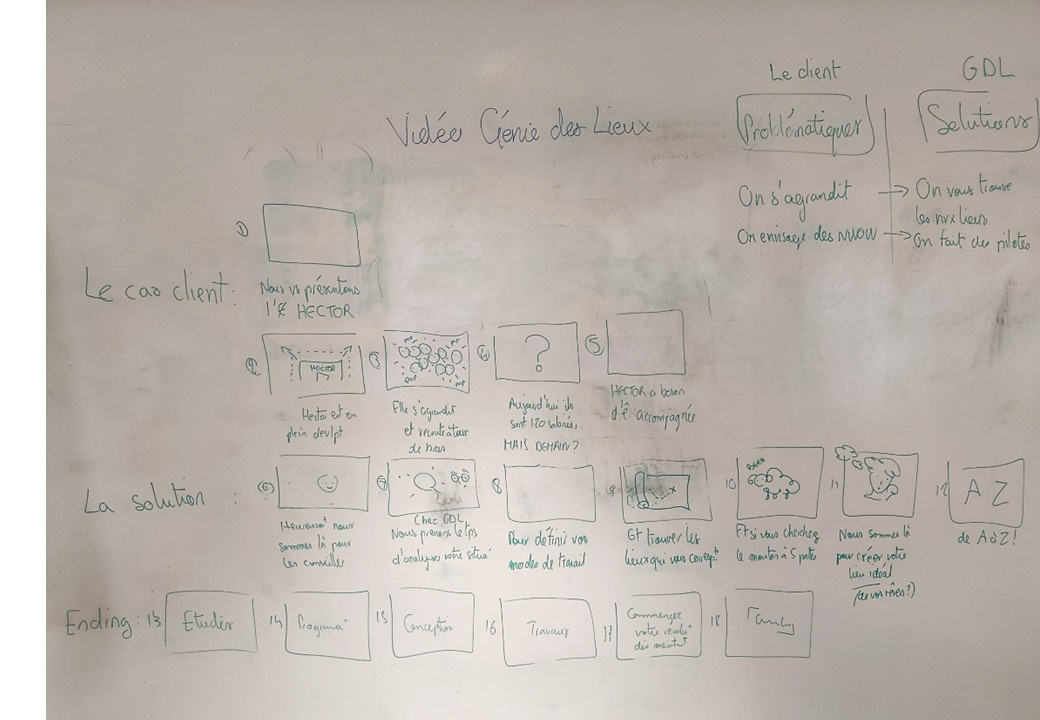 Vidéo Génie des Lieux
Le client
Problématiques
On s'agrandit
On envisage des NWOW
GDL
Solutions
On vous trouve
les nvx lieux
On fait des pilotes
Le cas client :
1)
Nous vs présentons
l'E HECTOR
2
HECTOR
Hector est en
plein devlpt
3
POP
POP
POP
POP
Elle s'agrandit
et recrute
de bras
4
?
Aujourd'hui ils
sont 120 salariés,
MAIS DEMAIN ?
5
HECTOR a besoin
d'ê accompagnée
La solution :
(6)
nous
sommes là pour
les conseiller
7
Chez GDL
Nous prenons le tps
d'analyser votre situa°
8
Pour définir vos
modes de travail
9
Et trouver les
lieux qui vous
10
Et si vous cherchez
le mouton à 5 pattes
11
Nous sommes là
pour créer votre
lieu idéal
(de vos rêves ?)
12
A Z
de A à Z !
Ending :
13
Etudes
14
15
Conception
16
Travaux
17
Commencez
votre
dès maint^t
18